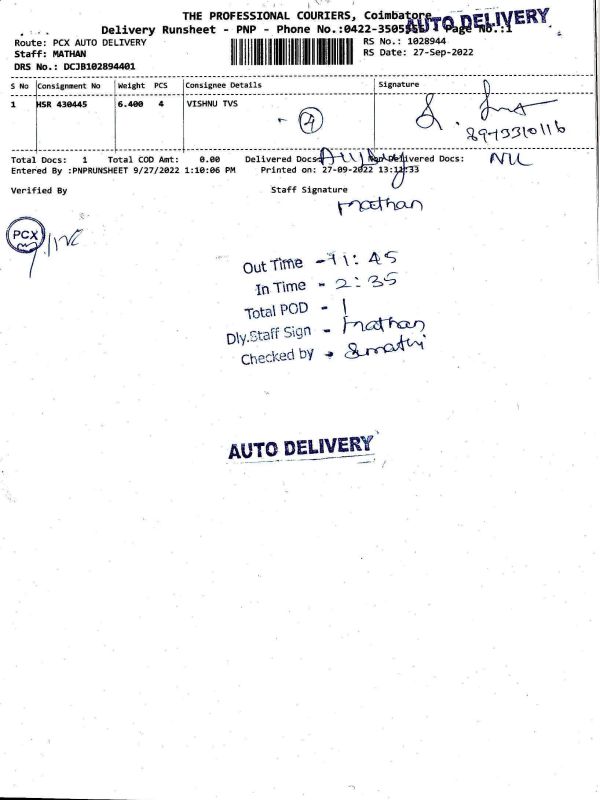 THE PROFESSIONAL COURIERS, Coimbatore
AUTO DELIVERY
Delivery Runsheet - PNP - Phone No.:0422-3505555 - Page No.:1
Route: PCX AUTO DELIVERY
RS No.: 1028944
Staff: MATHAN
RS Date: 27-Sep-2022
DRS No.: DCJB102894401
S No Consignment No Weight PCS Consignee Details Signature
1 HSR 430445 6.400 4 VISHNU TVS
4
8973310116
Total Docs: 1 Total COD Amt: 0.00 Delivered Docs: Non Delivered Docs: NIL
Entered By :PNPRUNSHEET 9/27/2022 1:10:06 PM Printed on: 27-09-2022 13:11:33
Verified By Staff Signature
Mathan
PCX
Out Time - 11:45
In Time - 2:35
Total POD - 1
Dly.Staff Sign - Mathan
Checked by - Sumathi
AUTO DELIVERY